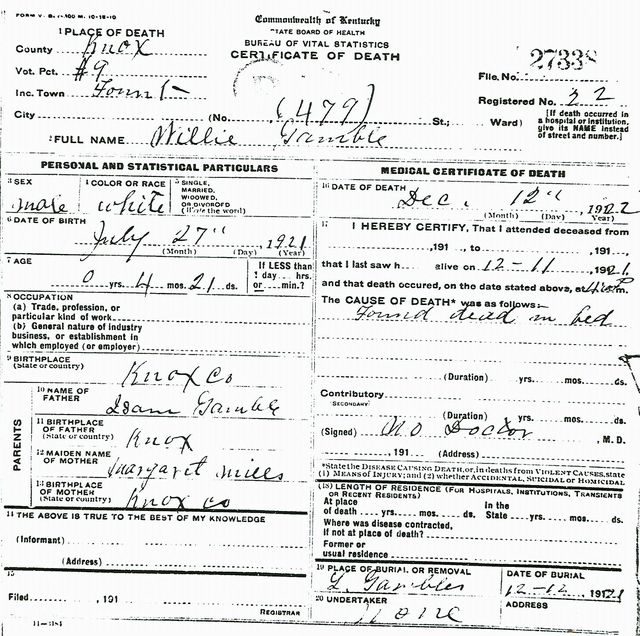 FORM V. S. 1-100 M. 10-18-10
Commonwealth of Kentucky
STATE BOARD OF HEALTH
BUREAU OF VITAL STATISTICS
CERTIFICATE OF DEATH
1 PLACE OF DEATH
County Knox
Vot. Pct. #9
Inc. Town
City
(No. (479) St.; Ward)
File No. 27338
Registered No. 32
[If death occurred in
a hospital or institution,
give its NAME instead
of street and number.]
2 FULL NAME Willie Gamble
PERSONAL AND STATISTICAL PARTICULARS
3 SEX male
4 COLOR OR RACE white
5 SINGLE,
MARRIED,
WIDOWED,
OR DIVORCED
(Write the word)
6 DATE OF BIRTH
July 27" , 1921
(Month) (Day) (Year)
7 AGE
0 yrs. 4 mos. 21 ds.
If LESS than
1 day hrs.
or min.?
8 OCCUPATION
(a) Trade, profession, or
particular kind of work
(b) General nature of industry
business, or establishment in
which employed (or employer)
9 BIRTHPLACE
(State or country) Knox co
PARENTS
10 NAME OF
FATHER Gamble
11 BIRTHPLACE
OF FATHER
(State or country) Knox
12 MAIDEN NAME
OF MOTHER Margaret mills
13 BIRTHPLACE
OF MOTHER
(State or country) Knox co
14 THE ABOVE IS TRUE TO THE BEST OF MY KNOWLEDGE
(Informant)
(Address)
15
Filed , 191
REGISTRAR
11—384
MEDICAL CERTIFICATE OF DEATH
16 DATE OF DEATH
Dec. 12" , 19
(Month) (Day) (Year)
17 I HEREBY CERTIFY, That I attended deceased from
, 191 , to , 191 ,
that I last saw h alive on 12-11 , 1921
and that death occured, on the date stated above, at m.
The CAUSE OF DEATH* was as follows:
Found dead in bed
(Duration) yrs. mos. ds.
Contributory
SECONDARY
(Duration) yrs. mos. ds.
(Signed) No Doctor , M. D.
, 191 (Address)
*State the DISEASE CAUSING DEATH, or, in deaths from VIOLENT CAUSES, state
(1) MEANS OF INJURY; and (2) whether ACCIDENTAL, SUICIDAL or HOMICIDAL
(18) LENGTH OF RESIDENCE (FOR HOSPITALS, INSTITUTIONS, TRANSIENTS
OR RECENT RESIDENTS)
At place
of death yrs. mos. ds.
In the
State yrs. mos. ds.
Where was disease contracted,
if not at place of death?
Former or
usual residence
19 PLACE OF BURIAL OR REMOVAL
Gambles
DATE OF BURIAL
12-12 , 1921
20 UNDERTAKER
None
ADDRESS